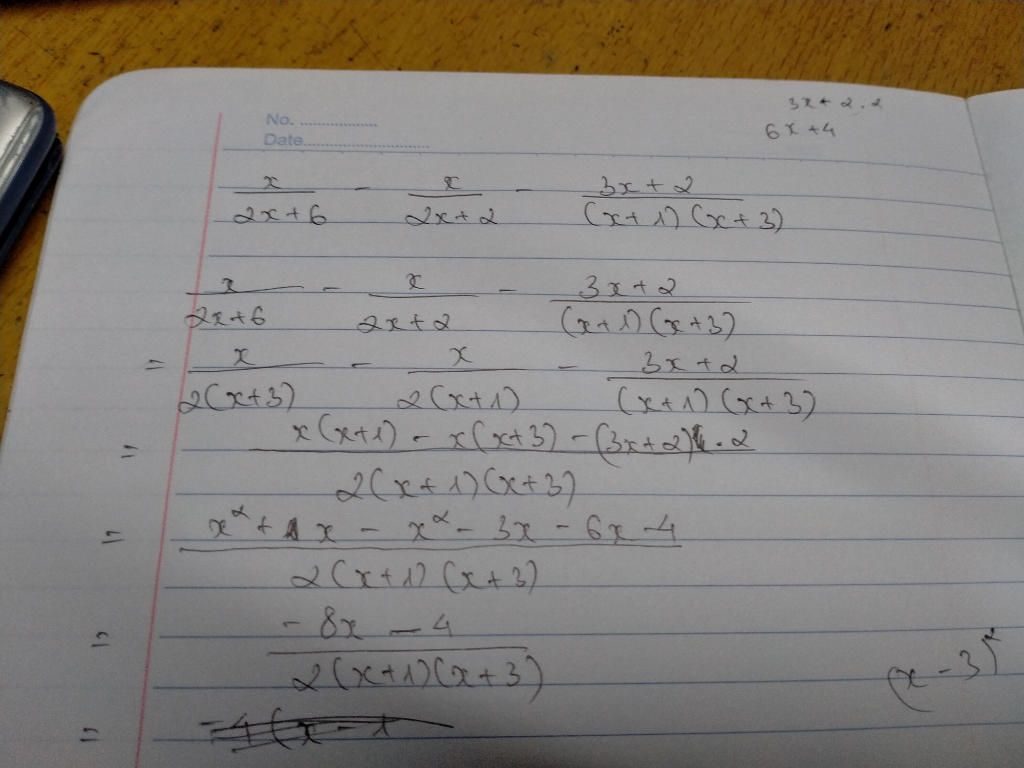 3x + 2 . 2
6x + 4
No. ..................
Date..............................
x/(2x+6) - x/(2x+2) - (3x+2)/((x+1)(x+3))
x/(2x+6) - x/(2x+2) - (3x+2)/((x+1)(x+3))
= x/(2(x+3)) - x/(2(x+1)) - (3x+2)/((x+1)(x+3))
= (x(x+1) - x(x+3) - (3x+2).2)/(2(x+1)(x+3))
= (x² + x - x² - 3x - 6x - 4)/(2(x+1)(x+3))
= (-8x - 4)/(2(x+1)(x+3))
(x - 3)²
= -4(x - 1